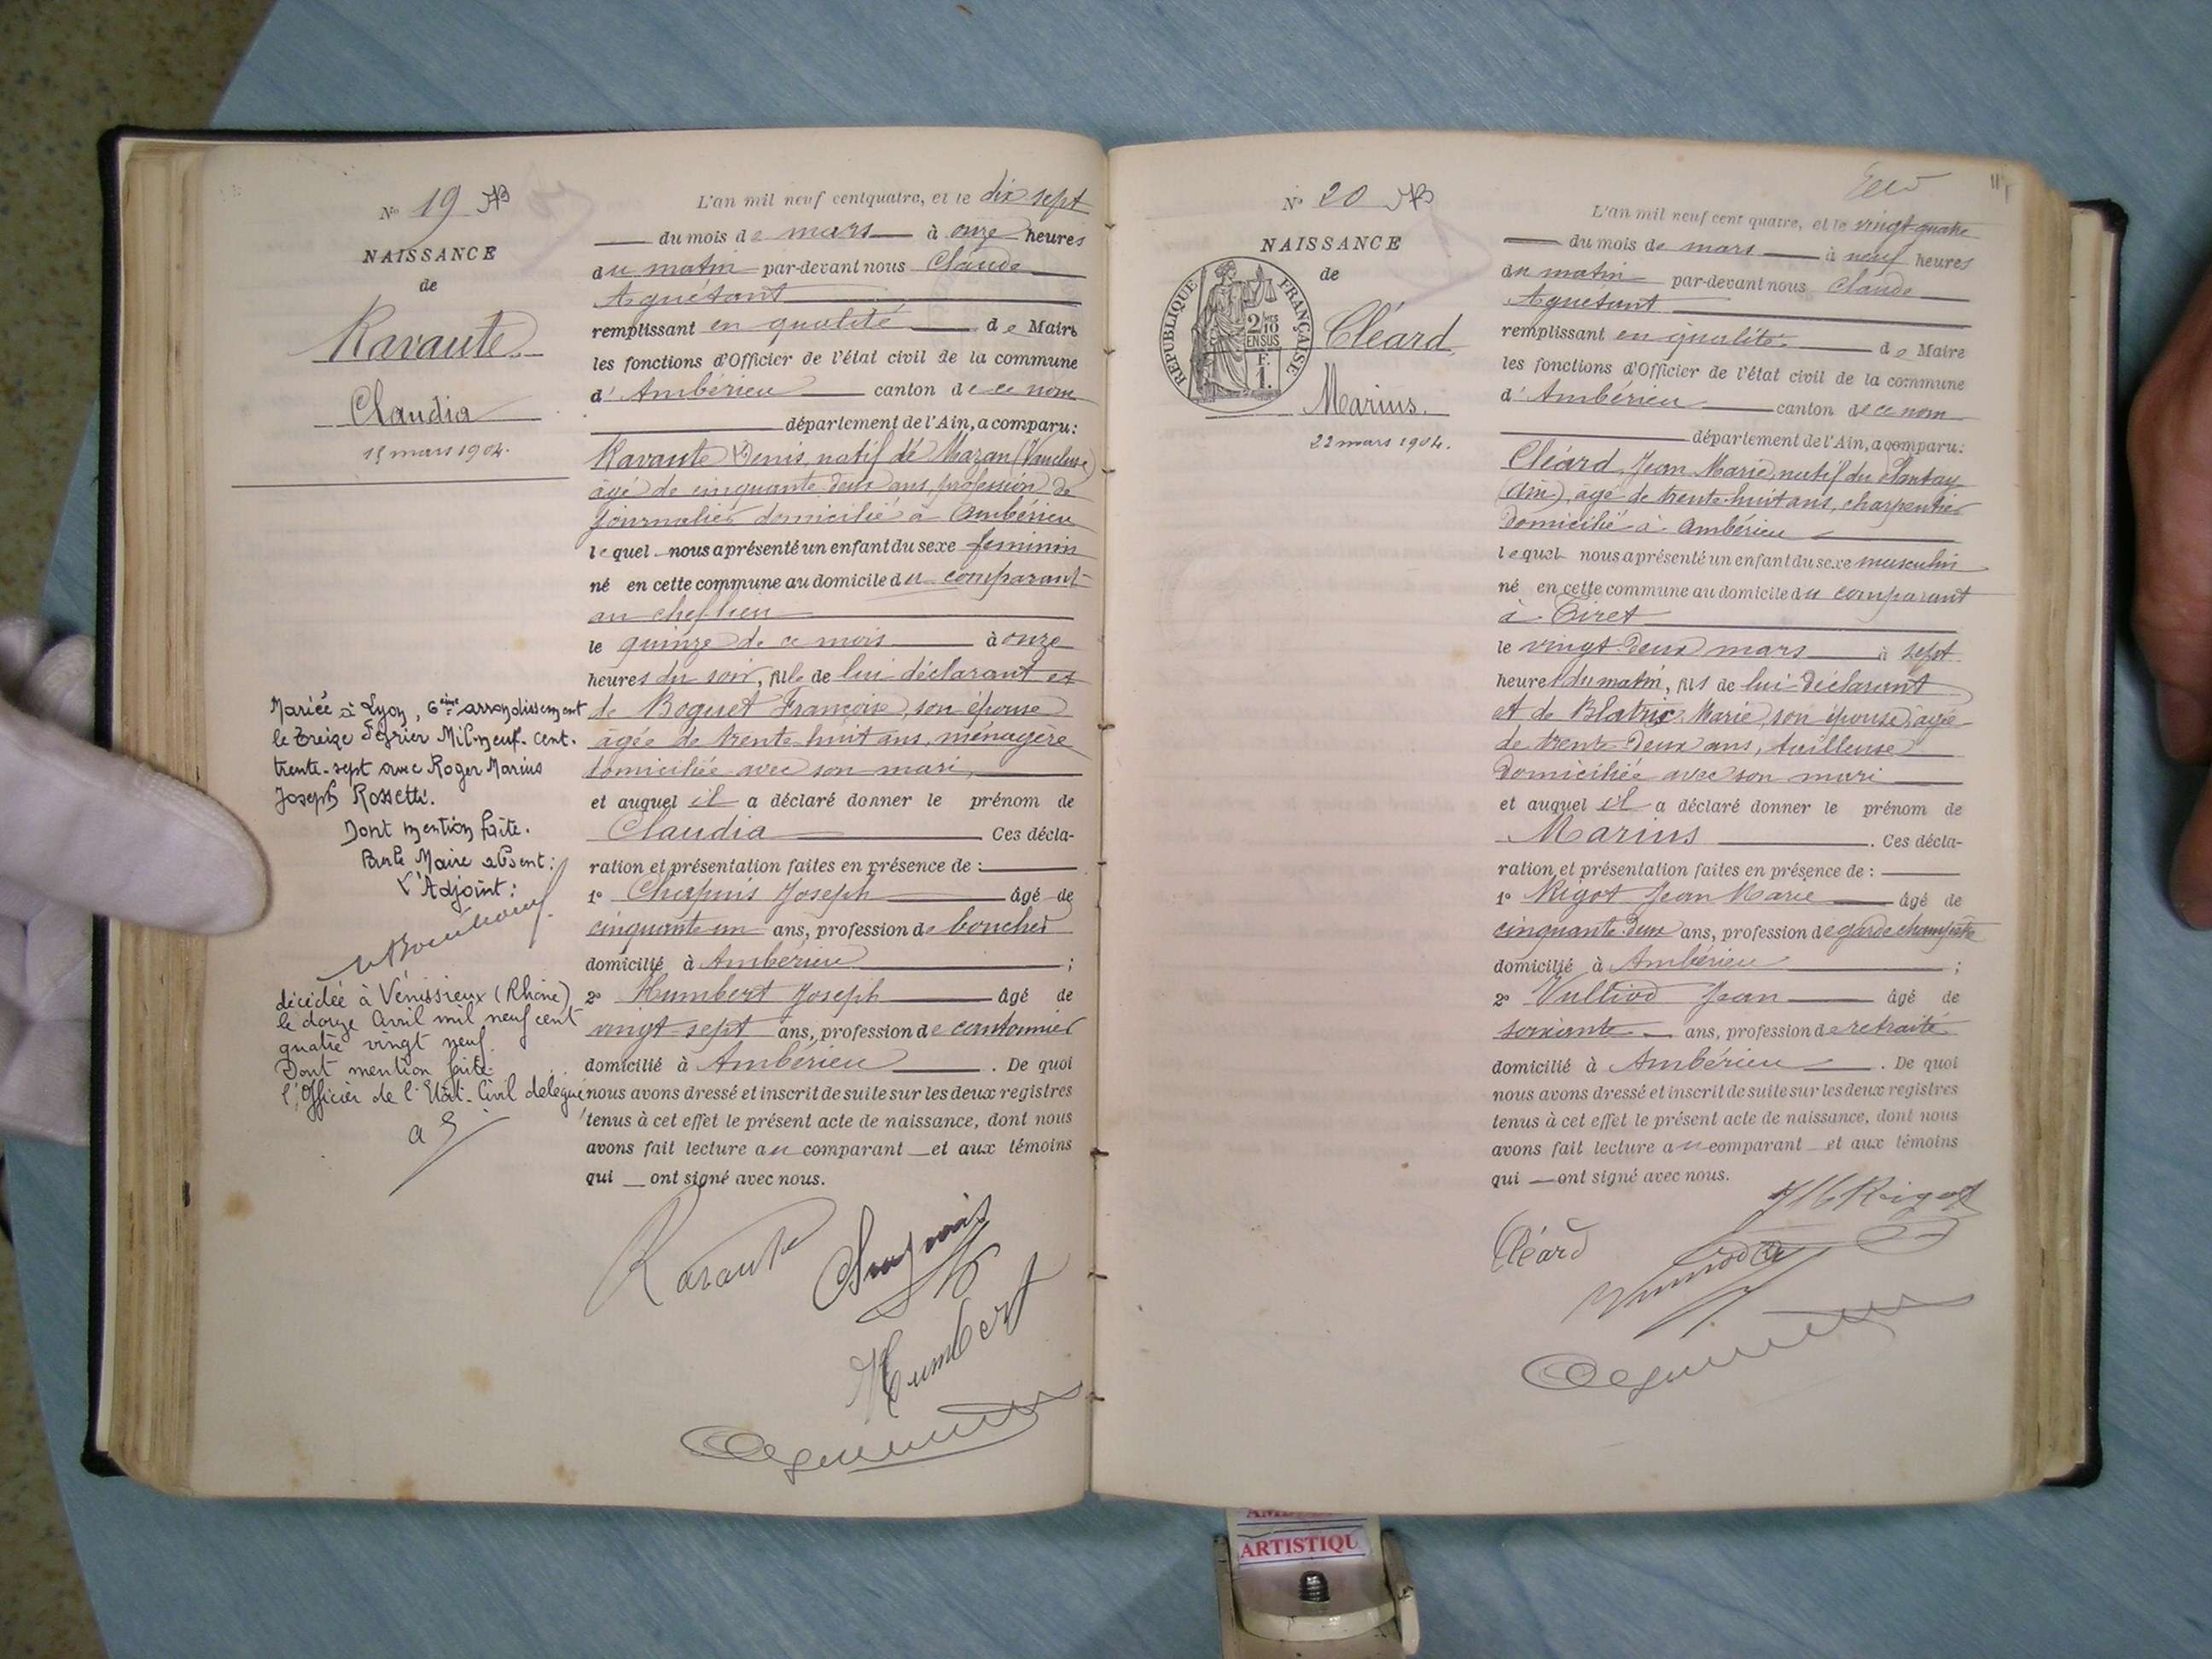 No 19
NAISSANCE
de
Ravaute
Claudia
15 mars 1904.
Mariée à Lyon, 6ème arrondissement
le treize Février Mil-neuf-cent-
trente-sept avec Roger Marius
Joseph Rossetti.
Dont mention faite.
Pour le Maire absent:
L'Adjoint:
décédée à Vénissieux (Rhône)
le douze Avril mil neuf cent
quatre vingt neuf.
Dont mention faite.
l'Officier de l'Etat-Civil délégué
L'an mil neuf cent quatre, et le dix sept
du mois de mars à onze heures
du matin par-devant nous Claude
Aguétant
remplissant en qualité de Maire
les fonctions d'Officier de l'état civil de la commune
d'Ambérieu canton de ce nom
département de l'Ain, a comparu:
Ravaute Denis, natif de Mazan (Vaucluse)
âgé de cinquante deux ans, profession de
journalier domicilié à Ambérieu
lequel nous a présenté un enfant du sexe feminin
né en cette commune au domicile du comparant
au chef-lieu
le quinze de ce mois à onze
heures du soir, fille de lui déclarant et
de Boguet Françoise, son épouse
âgée de trente-huit ans, ménagère
domiciliée avec son mari,
et auquel il a déclaré donner le prénom de
Claudia Ces décla-
ration et présentation faites en présence de :
1° Chapuis Joseph âgé de
cinquante un ans, profession de boucher
domicilié à Ambérieu ;
2° Humbert Joseph âgé de
vingt-sept ans, profession de cantonnier
domicilié à Ambérieu . De quoi
nous avons dressé et inscrit de suite sur les deux registres
tenus à cet effet le présent acte de naissance, dont nous
avons fait lecture au comparant et aux témoins
qui ont signé avec nous.
Ravaute
Chapuis
Humbert
No 20
NAISSANCE
de
RÉPUBLIQUE FRANÇAISE
2/10
EN SUS
F.
1.
Cléard
Marius.
22 mars 1904.
11
L'an mil neuf cent quatre, et le vingt-quatre
du mois de mars à neuf heures
du matin par-devant nous Claude
Aguétant
remplissant en qualité de Maire
les fonctions d'Officier de l'état civil de la commune
d'Ambérieu canton de ce nom
département de l'Ain, a comparu:
Cléard Jean Marie, natif du Plantay
(Ain), âgé de trente-huit ans, charpentier
domicilié à Ambérieu
lequel nous a présenté un enfant du sexe masculin
né en cette commune au domicile du comparant
à Tiret
le vingt-deux mars à sept
heures du matin, fils de lui déclarant
et de Blatrix Marie, son épouse, âgée
de trente-deux ans, tailleuse
domiciliée avec son mari
et auquel il a déclaré donner le prénom de
Marius . Ces décla-
ration et présentation faites en présence de :
1° Rigot Jean Marie âgé de
cinquante-deux ans, profession de garde champêtre
domicilié à Ambérieu ;
2° Vulliod Jean âgé de
soixante ans, profession de retraité
domicilié à Ambérieu . De quoi
nous avons dressé et inscrit de suite sur les deux registres
tenus à cet effet le présent acte de naissance, dont nous
avons fait lecture au comparant et aux témoins
qui ont signé avec nous.
Rigot
Cléard
ARTISTIQU